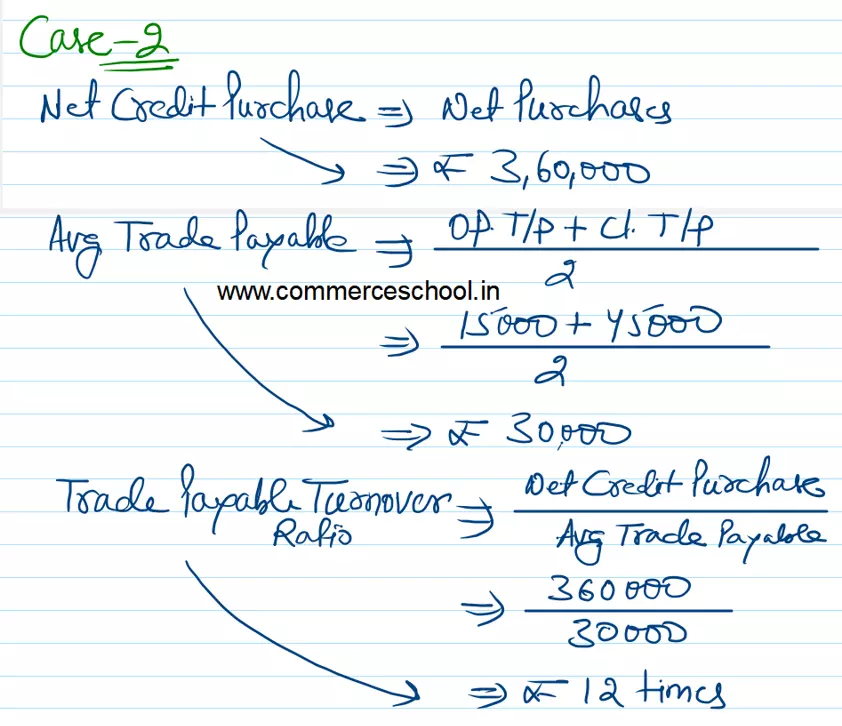 Case-2
Net Credit Purchase ⇒ Net Purchases
⇒ ₹ 3,60,000
Avg Trade Payable ⇒ Op. T/P + Cl. T/P
2
www.commerceschool.in
⇒ 15000 + 45000
2
⇒ ₹ 30,000
Trade Payable Turnover Ratio ⇒ Net Credit Purchase
Avg Trade Payable
⇒ 360000
30000
⇒ ₹ 12 times